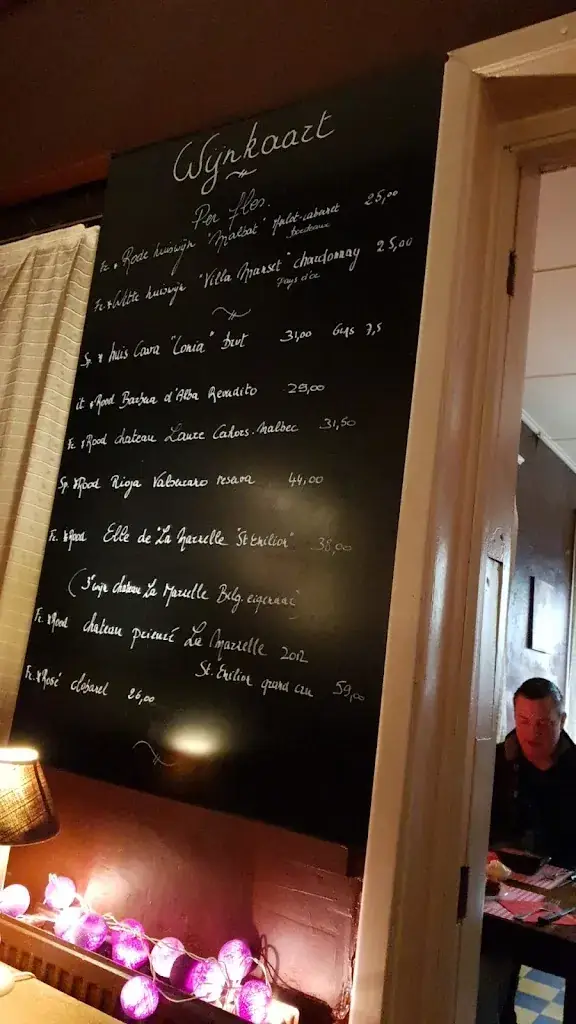 Wijnkaart
Per fles.
Fr. Rode huiswijn "Malbat" Merlot-cabernet 25,00
Bordeaux
Fr. Witte huiswijn "Villa Manset" chardonnay 25,00
Pays d'oc
Sp. huis Cava "Lonia" brut 31,00 Glas 7,5
it Rood Barbera d'Alba Revudito 29,00
Fr. Rood chateau Laure Cahors. malbec 31,50
Sp. Rood Rioja reserva 44,00
Fr. Rood Elle de "La Marzelle "St Emilion" 38,00
chateau La Marzelle Belg. eigenaar
Fr. Rood chateau prieuré La Marzelle 2012
St. Emilion grand cru 59,00
Fr. Rosé 26,00